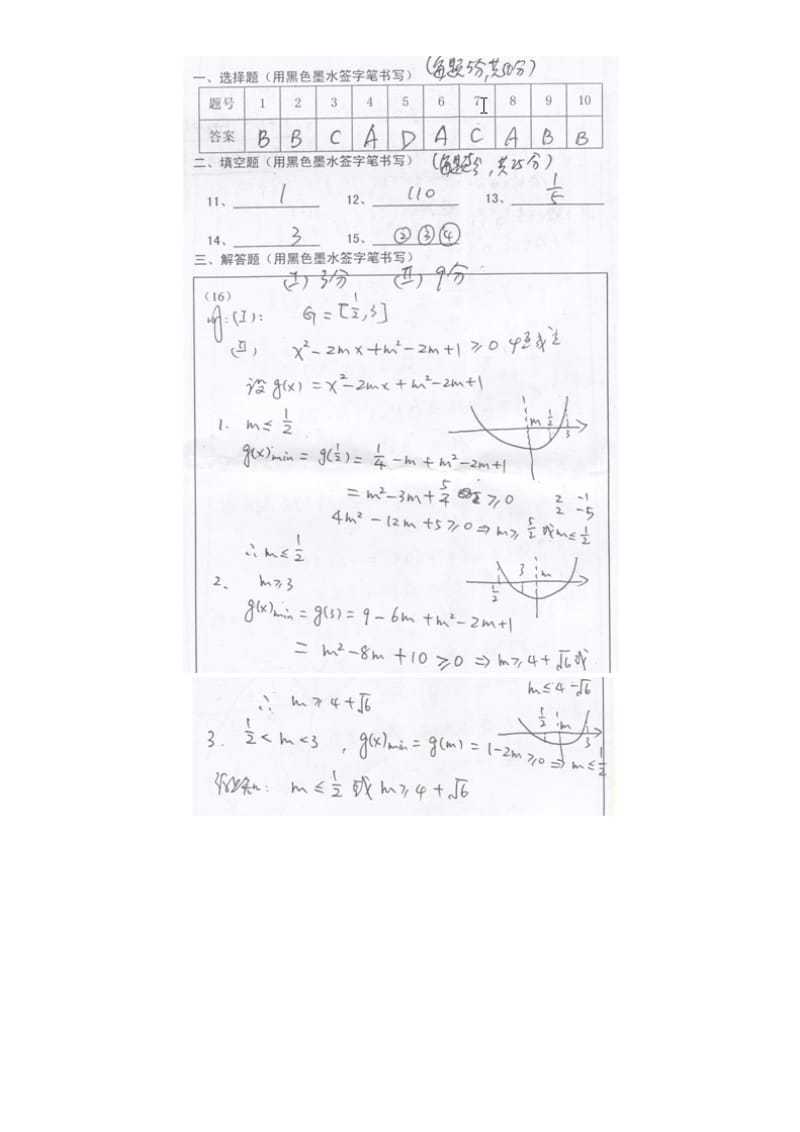 一、选择题（用黑色墨水签字笔书写）（每题5分,共50分）
题号 1 2 3 4 5 6 7 8 9 10
答案 B B C A D A C A B B
二、填空题（用黑色墨水签字笔书写）（每题5分,共25分）
11、 1 12、 110 13、 1/5
14、 3 15、 ②③④
三、解答题（用黑色墨水签字笔书写）
（Ⅰ）3分 （Ⅱ）9分
（16）
解:(Ⅰ): G=[1/2,3]
(Ⅱ) x²-2mx+m²-2m+1≥0 恒成立
设g(x)=x²-2mx+m²-2m+1
1. m≤1/2
m 1/2 3
g(x)min=g(1/2)=1/4-m+m²-2m+1
=m²-3m+5/4≥0
2 -1
2 -5
4m²-12m+5≥0⇒m≥5/2或m≤1/2
∴m≤1/2
2、 m≥3
1/2 3 m
g(x)min=g(3)=9-6m+m²-2m+1
=m²-8m+10≥0⇒m≥4+√6或
m≤4-√6
∴ m≥4+√6
1/2 m 3
3. 1/2<m<3 , g(x)min=g(m)=1-2m≥0⇒m≤1/2
综上知: m≤1/2或m≥4+√6